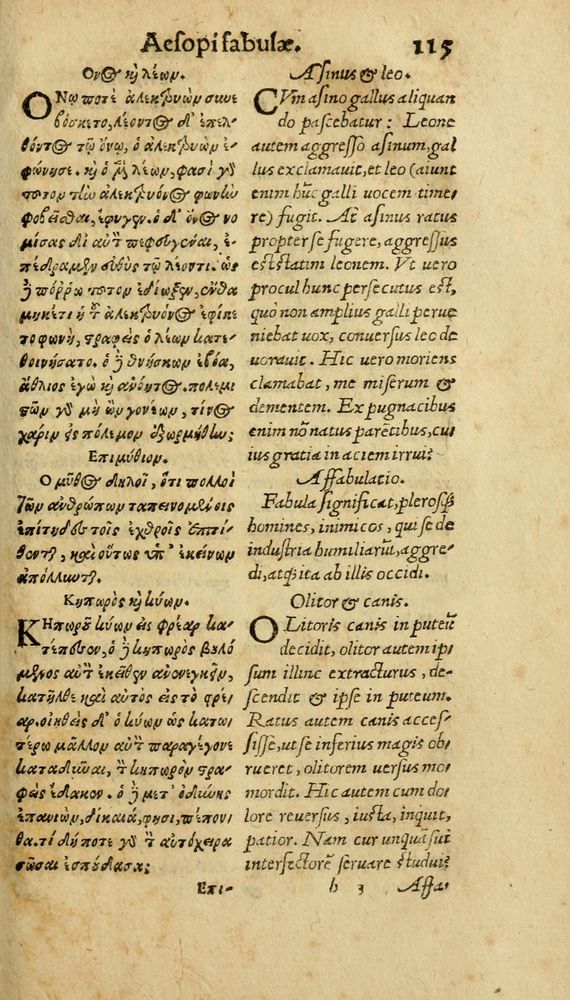 Aesopi fabulæ. 115
Ὄνος καὶ λέων.
ΟΝῳ ποτὲ ἀλεκτρυὼν συνε
βόσκετο, λέοντος δ' ἐπελ
θόντος τῷ ὄνῳ, ὁ ἀλεκτρυὼν ἐ
φώνησε. καὶ ὁ μὲν λέων, φασὶ γὰρ
τοῦτον τὴν ἀλεκτρυόνος φωνὴν
φοβεῖσθαι, ἔφυγεν. ὁ δ' ὄνος νο
μίσας δι' αὐτὸν πεφευγέναι, ἐ-
πέδραμεν εὐθὺς τῷ λέοντι. ὡς
δὲ πόῤῥω τοῦτον ἐδίωξεν, ἔνθα
μηκέτι ἡ τοῦ ἀλεκτρυόνος ἐφικνεῖ
το φωνὴ, στραφεὶς ὁ λέων κατε-
θοινήσατο. ὁ δὲ θνήσκων ἐβόα,
ἄθλιος ἐγὼ καὶ ἀνόητος. πολεμι
στῶν γὰρ μὴ ὢν γονέων, τίνος
χάριν εἰς πόλεμον ἐξωρμήθην;
Ἐπιμύθιον.
Ὁ μῦθος δηλοῖ, ὅτι πολλοὶ
τῶν ἀνθρώπων ταπεινουμένοις
ἐπίτηδες τοῖς ἐχθροῖς ἐπιτί-
θενται, καὶ οὕτως ὑπ' ἐκείνων
ἀπόλλυνται.
Κηπωρὸς καὶ κύων.
ΚΗπωροῦ κύων εἰς φρέαρ κα-
τέπεσεν, ὁ δὲ κηπωρὸς βουλό
μενος αὐτὸν ἐκεῖθεν ἀνενεγκεῖν,
κατῆλθε καὶ αὐτὸς εἰς τὸ φρέ-
αρ. οἰηθεὶς δ' ὁ κύων ὡς κατω-
τέρω μᾶλλον αὐτὸν παραγέγονε
καταδῦναι, τὸν κηπωρὸν στρα-
φεὶς ἔδακεν. ὁ δὲ μετ' ὀδύνης
ἐπανιὼν, δίκαιά, φησι, πέπον-
θα. τί δήποτε γὰρ τὸν αὐτόχειρα
σῶσαι ἐσπούδασα;
Ἐπι-
Asinus & leo.
CVm asino gallus aliquan
do pascebatur: Leone
autem aggresso asinum, gal
lus exclamauit, et leo (aiunt
enim hũc galli uocem time-
re) fugit. At asinus ratus
propter se fugere, aggressus
est statim leonem. Vt uero
procul hunc persecutus est,
quò non amplius galli perue
niebat uox, conuersus leo de
uorauit. Hic uero moriens
clamabat, me miserum &
dementem. Ex pugnacibus
enim nõ natus parẽtibus, cu-
ius gratia in aciem irrui?
Affabulatio.
Fabula significat, plerosq;
homines, inimicos, qui se de
industria humiliarũt, aggre-
di, atq; ita ab illis occidi.
Olitor & canis.
OLitoris canis in puteũ
decidit, olitor autem ip-
sum illinc extracturus, de-
scendit & ipse in puteum.
Ratus autem canis acces-
sisse, ut se inferius magis ob-
rueret, olitorem uersus mo-
mordit. Hic autem cum do-
lore reuersus, iusta, inquit,
patior. Nam cur unquã sui
interfectorẽ seruare studui?
h 3 Affa-